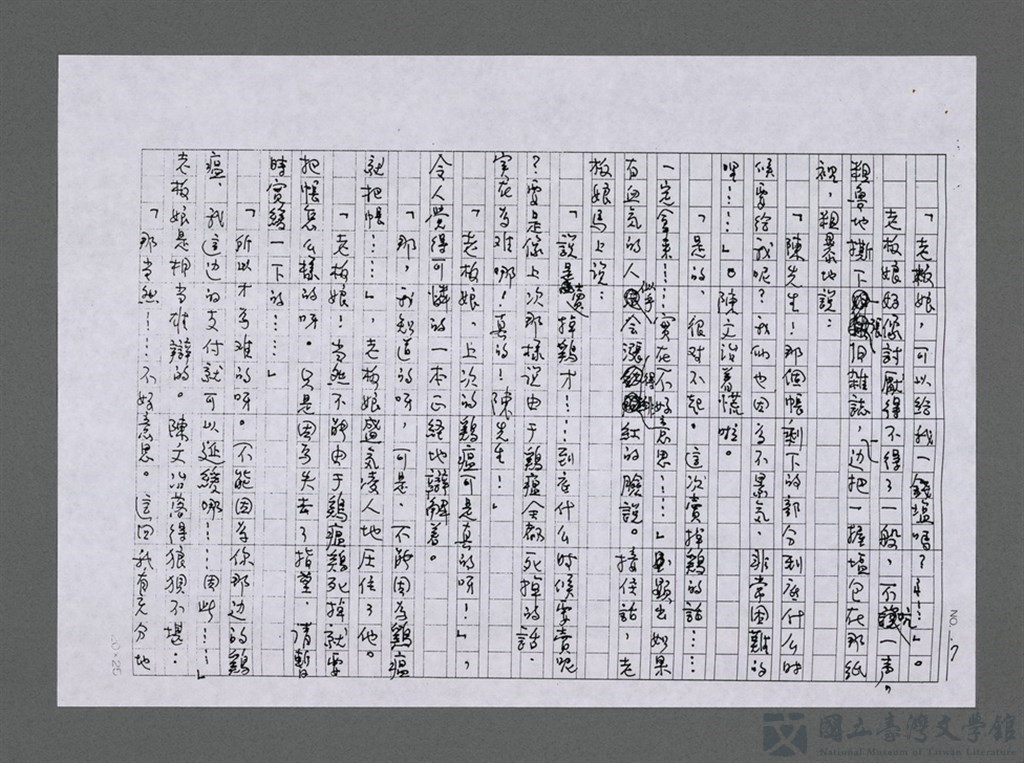 「老板娘，可以给我一錢塩嗎？……」。
老板娘好像討厭得不得了一般，不吭一声，
粗魯地撕下一張旧雜誌，边把一握塩包在那紙
裡，粗暴地說：
「陳先生！那個帳，剩下的部分到底什么时
候要给我呢？我们也因為不景氣，非常困難的
哩……」。陳文治着慌啦。
「是的，很对不起。這次賣掉鷄的話……
一定拿来……实在不好意思……」显出如果
有血氣的人似乎会漲得紅的臉說。接住話，老
板娘马上说：
「說是賣掉鷄才……到底什么时候要賣呢
？要是像上次那樣说由于鷄瘟全都死掉的話，
实在為难哪！真的！陳先生！」
「老板娘，上次的鷄瘟可是真的呀！」，
令人覺得可憐的一本正経地辯解着。
「那，我知道的呀，可是，不能因為鷄瘟
就把帳……」，老板娘盛気凌人地圧住了他。
「老板娘！当然不能由于鷄瘟鷄死掉就要
把帳怎么樣的呀。只是因為失去了指望，请暫
時寬緩一下的……」
「所以才為难的呀。不能因為你那边的鷄
瘟，我這边的支付就可以延緩哪！……因此……」
老板娘是相当雄辯的。陳文治落得狼狽不堪：
「那当然……不好意思。這回我有充分地
20.7
20×25
國立臺灣文學館
National Museum of Taiwan Literature